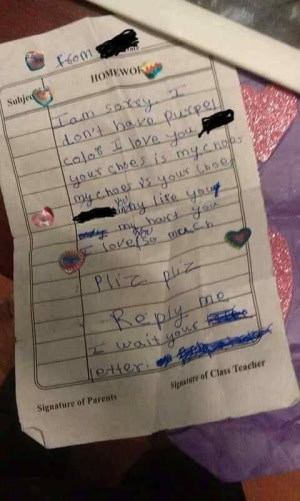 From
HOMEWOR
Subjec
I am sorry. I
don't have purpel
color I love you
your choes is my choas
my choes is your choes
only like you
my hart you
I love you so much
Pliz pliz
Reply me
I wait your
letter.
Signature of Parents
Signature of Class Teacher